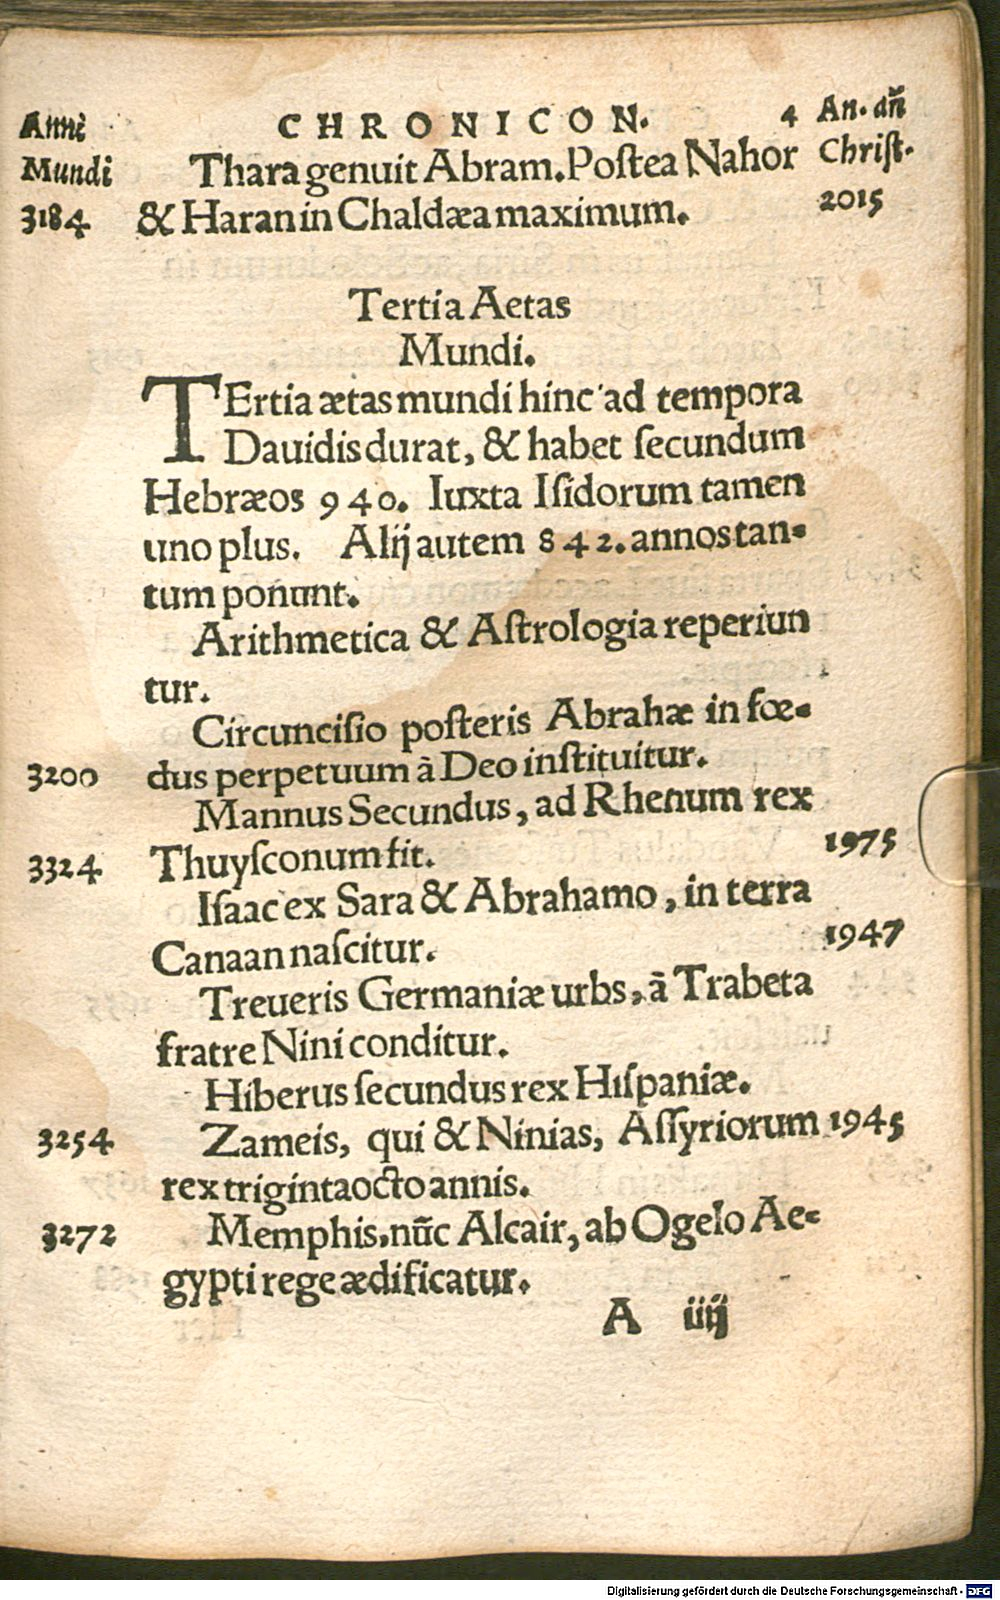 Anni CHRONICON. 4 An. dñ
Mundi Thara genuit Abram. Poſtea Nahor Chriſt.
3184 & Haran in Chaldæa maximum. 2015
Tertia Aetas
Mundi.
TErtia ætas mundi hinc ad tempora
Dauidis durat, & habet ſecundum
Hebræos 940. Iuxta Iſidorum tamen
uno plus. Alij autem 842. annos tan-
tum ponunt.
Arithmetica & Aſtrologia reperiun
tur.
Circunciſio poſteris Abrahæ in fœ-
3200 dus perpetuum à Deo inſtituitur.
Mannus Secundus, ad Rhenum rex
3324 Thuyſconum fit. 1975
Iſaac ex Sara & Abrahamo, in terra
Canaan naſcitur. 1947
Treueris Germaniæ urbs, à Trabeta
fratre Nini conditur.
Hiberus ſecundus rex Hiſpaniæ.
3254 Zameis, qui & Ninias, Aſſyriorum 1945
rex triginta octo annis.
3272 Memphis, nũc Alcair, ab Ogelo Ae-
gypti rege ædificatur.
A iiij
Digitalisierung gefördert durch die Deutsche Forschungsgemeinschaft - DFG